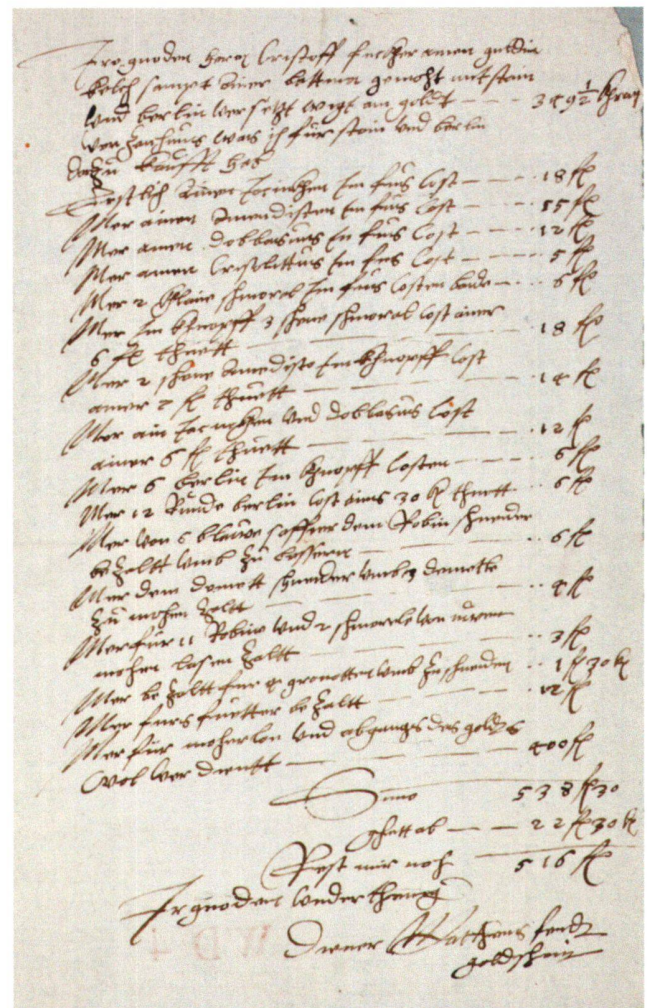 Ire gnoden herrn Cristoff fuckher amen guldin
kelch sampt ainer battena gemacht mit stain
vnd berlin versetzt wigt an goldt — — — 349 1/2 khran
von Zenhums was ich für stain vnd berlin
dartzu kaufft hab
Erstlich ainen Jacinkhen Im fus cost — — — 18 fl
Mer ainen Amadisten Im fus cost — — — 15 fl
Mer ainen dobbasius Im fus Cost — — 12 fl
Mer amen Crisolittus Im fus Cost — — 5 fl
Mer 2 klaine schmoral Im fus Costen baide — — 6 fl
Mer Im khnopff 3 schene schmoral cost ainer
6 fl thuett — 18 fl
Mer 2 schene Amadisto Im khnopff cost
amer 7 fl thuett — 14 fl
Mer ain Jacinkhen vnd doblasius cost
ainer 6 fl thuett — 12 fl
Mer 6 berlin Im khnopff costen — — 6 fl
Mer 12 Runde berlin cost ains 30 K thuett — 6 fl
Mer von 6 blawe saffier dem Robin schneider
bezaltt vmb zu bessern — 6 fl
Mer dem demott schneider vmb 3 demotte
zu mohen zaltt — 4 fl
Mer für 11 Robine vnd 2 schmorele von
mohen lasen zaltt — 3 fl
Mer bezaltt fur 4 gronotten vmb zuschneiden — 1 fl 30 K
Mer furs fuetter bezaltt — 12 fl
Mer für macherlon vnd abgangs des goldts
wol verdientt — 400 fl
Suma 538 fl 30
Ghett ab — — 22 fl 30 K
Rest mir noch 516 fl
Ir gnoden vnderthenig
Diener Matheus fendt
goldschmit